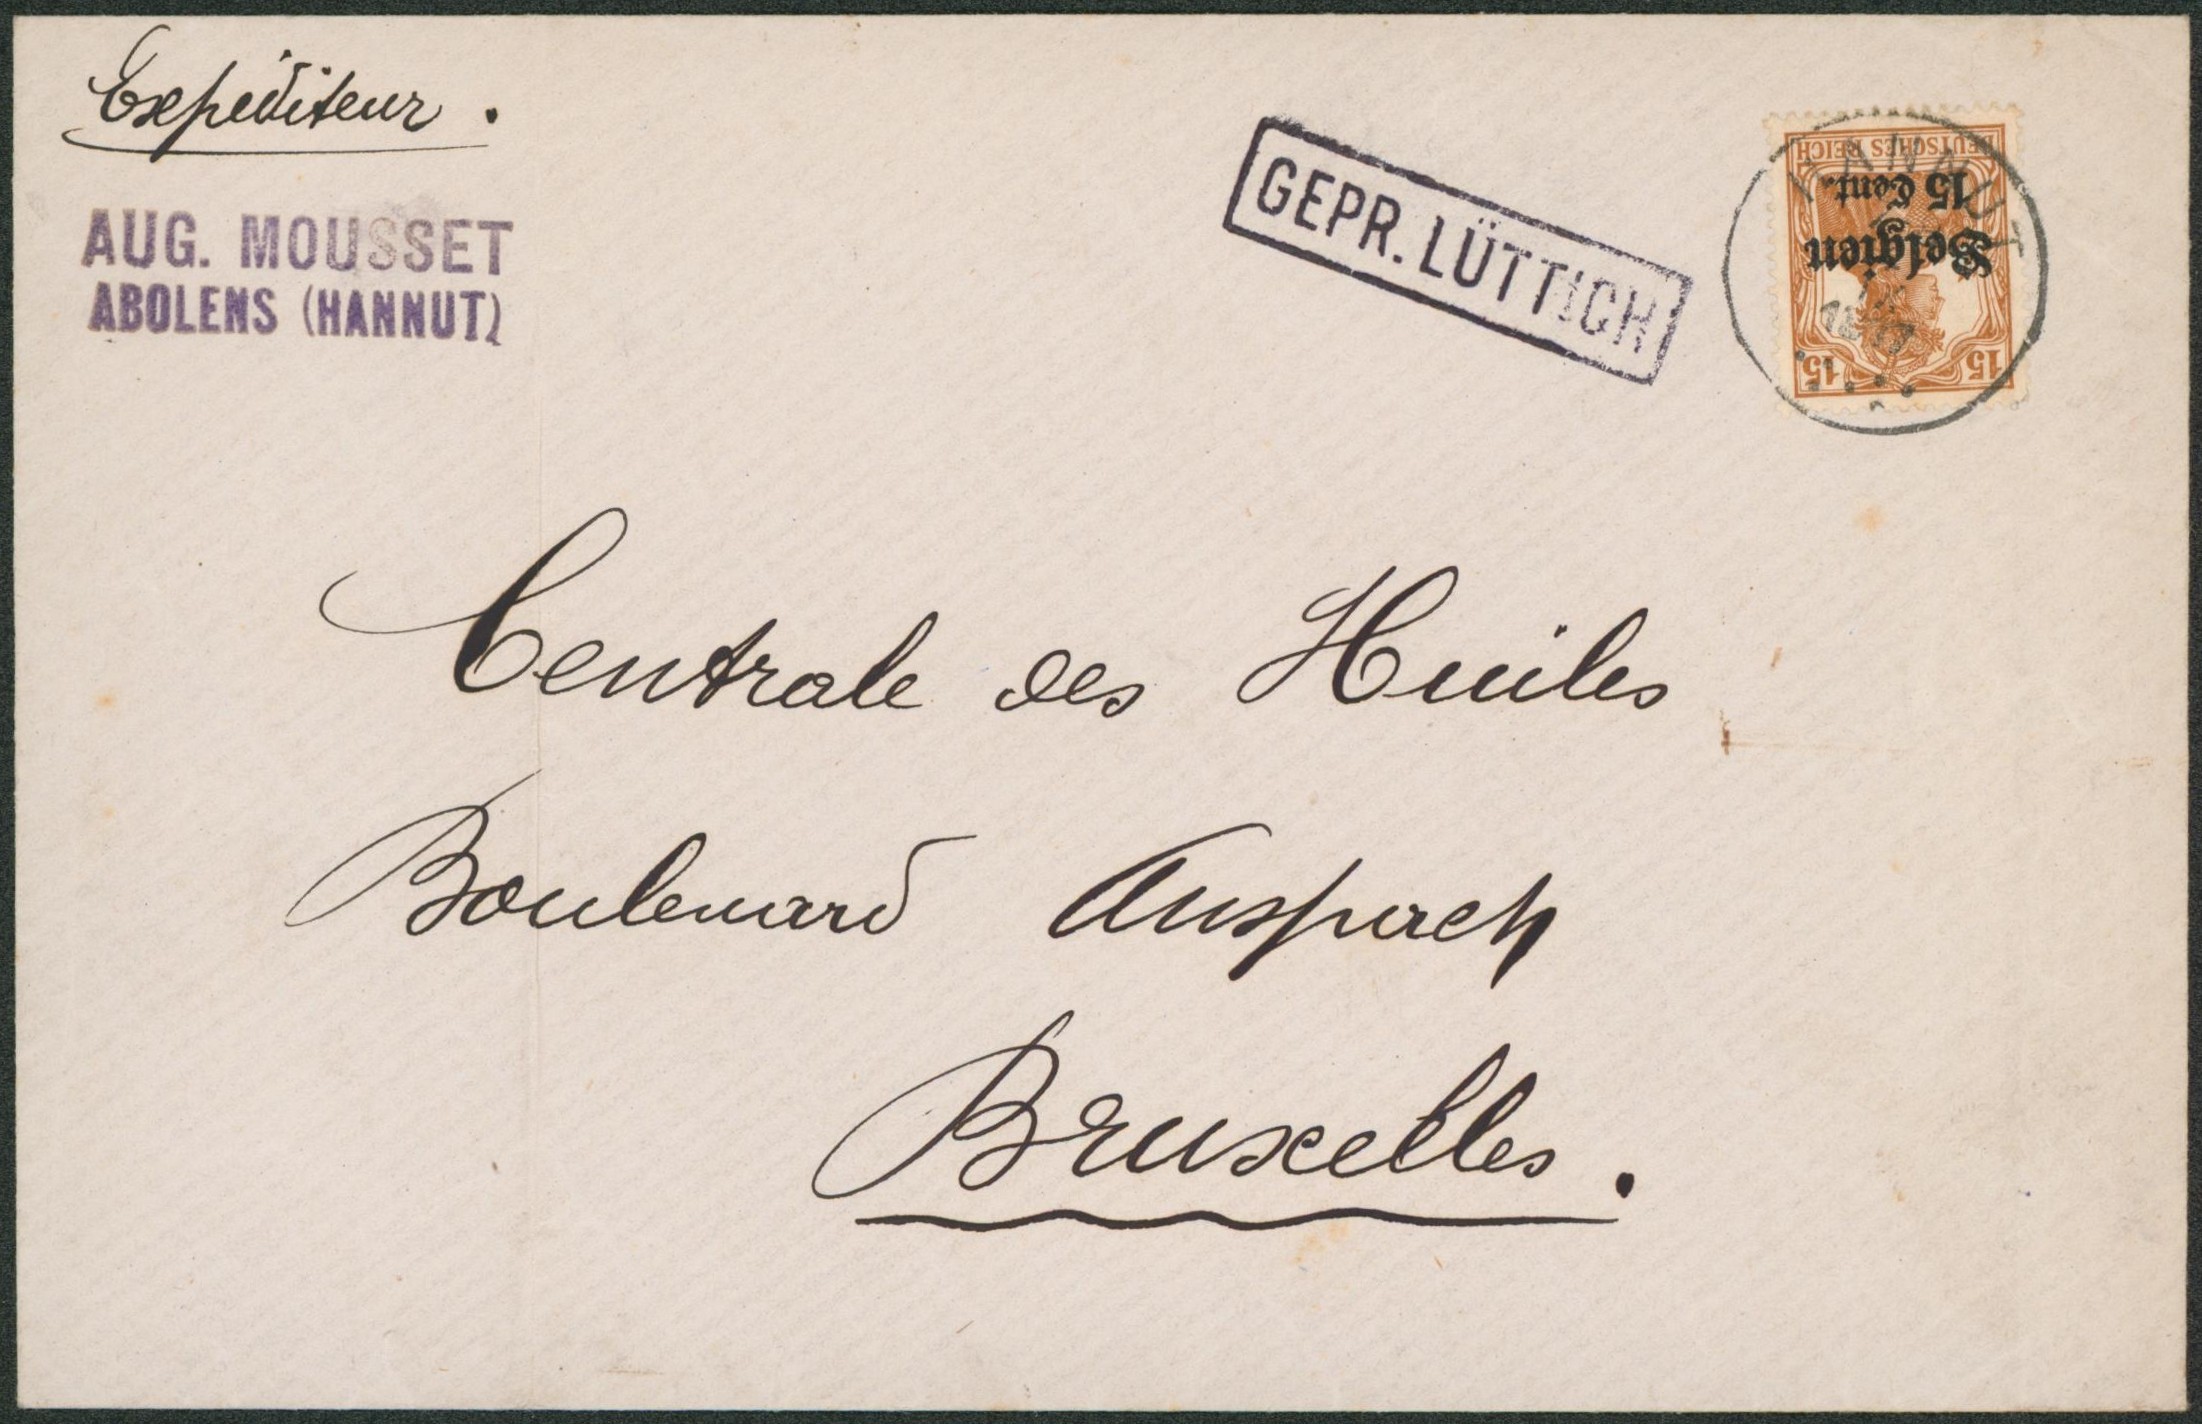 Expéditeur.
AUG. MOUSSET
ABOLENS (HANNUT)
GEPR. LÜTTICH
HANNUT
DEUTSCHES REICH
15 Cent.
Belgien
15 15
Centrale des Huiles
Boulevard Anspach
Bruxelles.